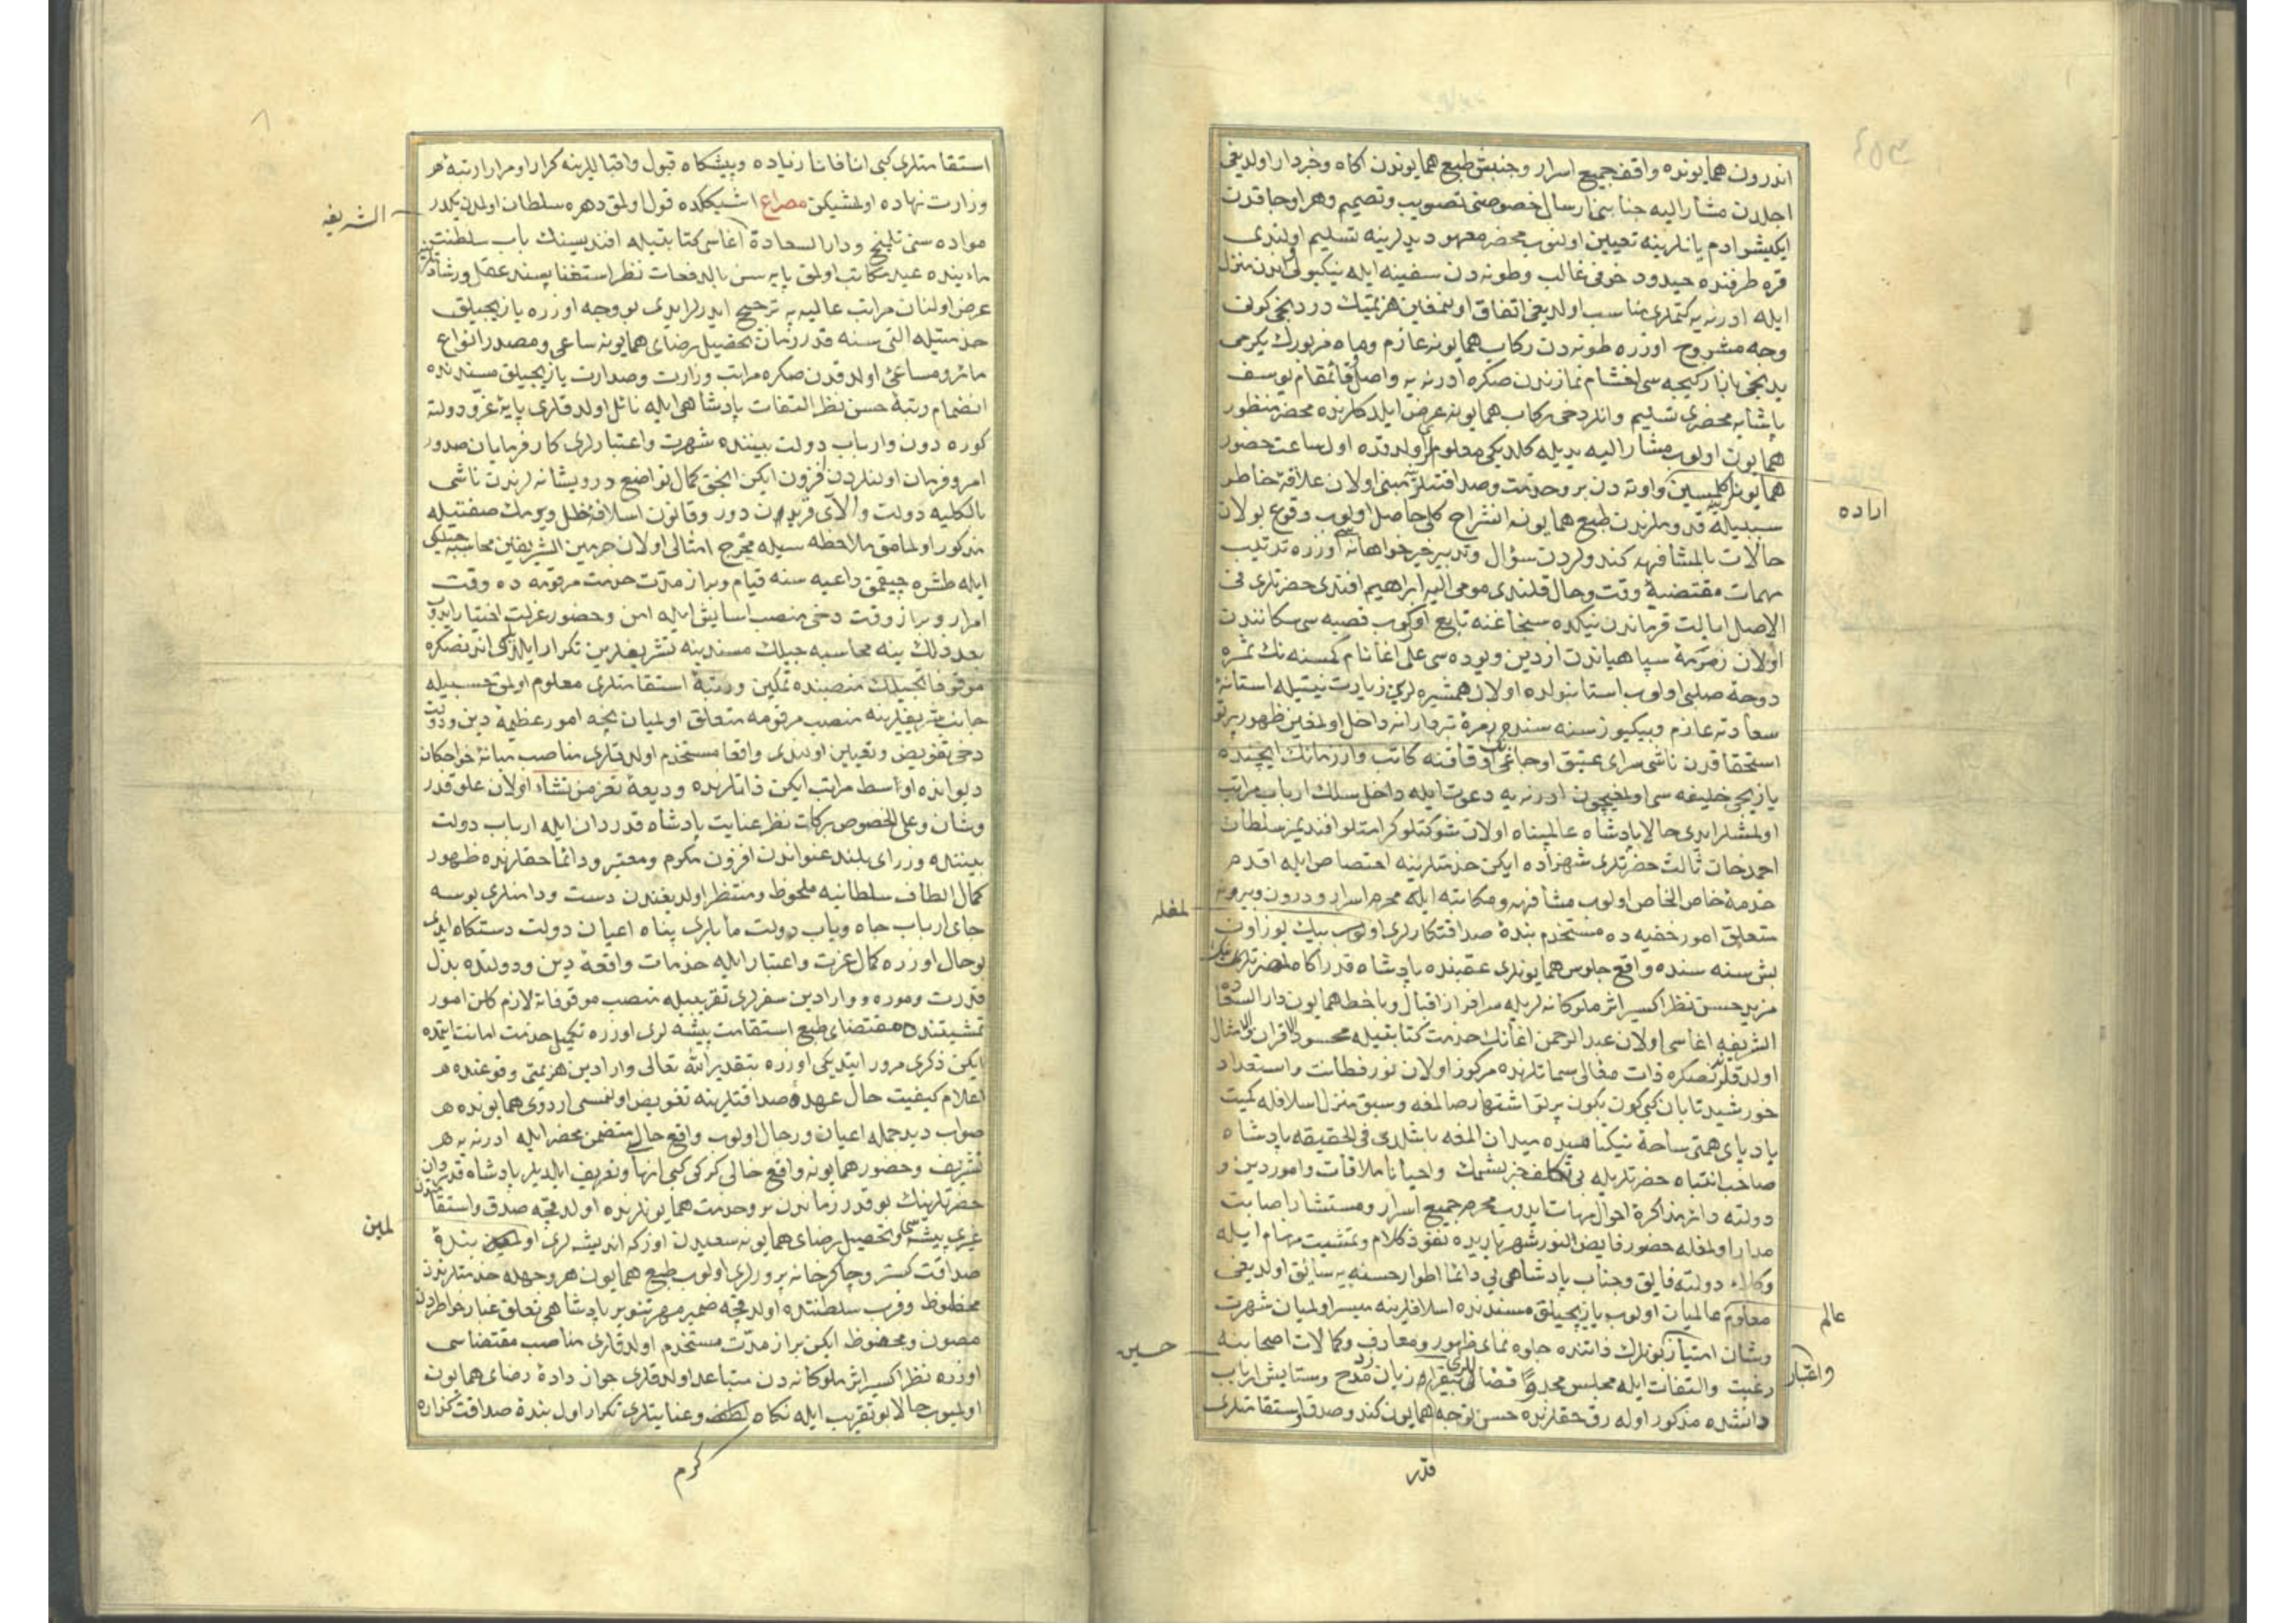 اندرون همایونده واقف جمیع اسرار و جنبش طبع همایوندن اکاه و خبردار اولدیغی
اجلدن مشار الیه جنابنی ارسال خصوصنی تصویب و تصمیم و هر اوجاقدن
ایکیشر ادم یانلرینه تعیین اولنوب محضر معهود یدلرینه تسلیم اولندی
قره طرفنده حیدود خوفی غالب و طونه دن سفینه ایله نیکبولی اندن منزل
ایله ادرنه یه کتملری مناسب اولدیغی اتفاق اولنمغین هزیمتك دردنجی کونی
وجه مشروح اوزره طونه دن رکاب همایونه عازم و ماه مزبورك یکرمی
یدنجی بازار کیجه سی اخشام نمازندن صکره ادرنه یه واصل و قائمقام یوسف
پاشایه محضری تسلیم و انلر دخی رکاب همایونه عرض ایلدکلرنده محضر منظور
همایون اولوب مشار الیه یدیله کلدیکی معلوملری اولدقده اول ساعت حضور
همایونه کلمسین اراده و اوته دن برو خدمت و صداقتلرینه مبنی اولان علاقهٔ خاطر
سببیله قدوملرندن طبع همایونه انشراح کلی حاصل اولوب وقوع بولان
حالات بالمشافهه کندولردن سؤال و تدبیر خیرخواهانه اوزره ترتیب
مهمات مقتضیهٔ وقت و حال قلندی مومی الیه ابراهیم افندی حضرتلری فی
الاصل ایالت قرماندن نیکده سنجاغنه تابع اوركوب قصبه سی سکانندن
اولان زمرهٔ سپاهیاندن ازدین ویوده سی علی اغا نام کمسنه نك ثمرهٔ
دوحهٔ صلبی اولوب استانبولده اولان همشیره لرین زیارت نیتیله استانهٔ
سعادته عازم و بیکیوز سنه سنده زمرهٔ تبردارانه داخل اولمغین ظهور پرتو
استحقاقدن ناشی سرای عتیق اوجاغی اوقافنه کاتب و ارزمانك ایچنده
یازیجی خلیفه سی اولمغیچون ادرنه یه دعوت ایله داخل سلك ارباب مراتب
اولمشلر ایدی حالا پادشاه عالمپناه اولان شوکتلو کرامتلو افندیمز سلطان
احمد خان ثالث حضرتلری شهزاده ایکن خدمتلرینه اختصاص ایله اقدم
خدمهٔ خاص الخاص اولوب مشافهه و مکاتبه ایله محرم اسرار و درون و بیرونه
متعلق امور خفیه ده مستخدم بندهٔ صداقتکارلری اولمغله بیك یوز اون
بش سنه سنده واقع جلوس همایونلری عقبنده پادشاه قدر اکاه حضرتلرینك
مزید حسن نظر اکسیر اثر ملوکانه لریله سرافراز اقبال و با خط همایون دار السعادة
الشریفه اغاسی اولان عبد الرحمن اغانك خدمت کتابتیله محسود الاقران و الامثال
اولدقلرندنصکره ذات معالی سماتلرنده مرکوز اولان نور فطانت و استعداد
خورشید تابان کبی کون بکون پرتو اشتهار صالمغه و سبق منزل اسلافله کمیت
بادپای همتی ساحهٔ نیکنامیده میدان المغه باشلدی فی الحقیقه پادشاه
صاحب انتباه حضرتلریله بی تکلف خبرلشمك و احیانا ملاقات و امور دین و
دولته دائر مذاکرهٔ احوال مهمات ایدوب محرم جمیع اسرار و مستشار اصابت
مدار اولمغله حضور فایض النور شهریاریده نفوذ کلام و تمشیت مهام ایله
وکلاء دولته فایق و جناب پادشاهی یی دائما اطوار حسنه یه سائق اولدیغی
معلوم عالمیان اولوب یازیجیلق مسندنده اسلافلرینه میسر اولمیان شهرت
و شان و اعتبار امتیاز بونلرك ذاتنده جلوه نمای ظهور و معارف و کمالات اصحابنه حسین
رغبت و التفات ایله مجلس محدود فضائلی زبان مدح و ستایش ارباب
دانشده مذکور اوله رق حقلرنده حسن توجه همایون کندو صدق و استقامتلری
اراده
لمغله
عالم
واعتبار
حسین
قدر
استقامتلری کبی انا فانا زیاده و پیشکاه قبول و اقباللرینه کرارا و مرارا رتبهٔ
وزارت نهاده اولمشیکن مصراع اشیککده قول اولمق دهره سلطان اولمدن یکدر
موادّه سنی تلمیح و دار السعادة اغاسی کتابتیله افندیسینك باب سلطنتی
مابینده عبد مکاتب اولمق پایه سنی بالدفعات نظر استغنا پسند عقل و رشادلرینه
عرض اولنان مراتب عالیه یه ترجیح ایدرلر ایدی بو وجه اوزره یازیجیلق
خدمتیله التی سنه قدر زمان تحصیل رضای همایونه ساعی و مصدر انواع
ماثر و مساعی اولدقدن صکره مراتب وزارت و صدارت یازیجیلق مسندنده
انضمام رتبهٔ حسن نظر التفات پادشاهی ایله نائل اولدقلری پایهٔ عزّ و دولته
کوره دون و ارباب دولت بیننده شهرت و اعتبارلری کارفرمایان صدور
امر و فرمان اولنلردن افزون ایکن انجق کمال تواضع درویشانه لرندن ناشی
بالکلیه دولت و الای قربدن دور و قانون اسلافه خلل ویرمك صفتیله
مذکور اولمامق ملاحظه سیله مخرج امثالی اولان حرمین الشریفین محاسبه جیلکی
ایله طشره چیقمق داعیه سنه قیام و براز مدت خدمت مرقومه ده وقت
امرار و براز وقت دخی منصب اسایش ایله امن و حضور عزلت اختیار ایدوب
بعد ذلك ینه محاسبه جیلك مسندینه تشریفلرین تکرار ایلدکلرندنصکره
موقوفاتجیلك منصبنده تمکین و رتبهٔ استقامتلری معلوم اولمق حسبیله
جانب شریفلرینه منصب مرقومه متعلق اولمیان نجه امور عظیمهٔ دین و دولت
دخی تفویض و تعیین اولندی واقعا مستخدم اولدقلری مناصب میانهٔ خواجکان
دیوانده اواسط مراتب ایکن ذاتلرنده ودیعهٔ تعز من تشاء اولان علو قدر
و شان و علی الخصوص برکات نظر عنایت پادشاه قدردان ایله ارباب دولت
بیننده وزرای بلند عنواندن افزون مکرم و معتبر و دائما حقلرنده ظهور
کمال الطاف سلطانیه ملحوظ و منتظر اولدیغندن دست و دامنلری بوسه
جای ارباب جاه و باب دولت مابلری پناه اعیان دولت دستکاه ایدی
بو حال اوزره کمال عزت و اعتبار ایله خدمات واقعهٔ دین و دولتده بذل
قدرت و موره و وارادین سفرلری تقریبیله منصب موقوفاته لازم کلن امور
تمشیتنده مقتضای طبع استقامت پیشه لری اوزره تکمیل خدمت امانت ایتمده
ایکن ذکری مرور ایتدیکی اوزره بتقدیر الله تعالی وارادین هزیمتی وقوعنده
اعلام کیفیت حال عهدهٔ صداقتلرینه تفویض اولنمسی اردوی همایونده
صواب دید جمله اعیان و رجال اولوب واقع حالی متضمن محضر ایله ادرنه یه
تشریف و حضور همایونه واقع حالی کرکی کبی انها و تعریف ایلدیلر پادشاه قدردان
حضرتلرینك بو قدر زماندن برو خدمت همایونلرنده اولدقچه صدق و استقامتدن
غیری پیشه سی و تحصیل رضای همایونه سعیدن اوزکه اندیشه لری اولمین بندهٔ
صداقت کستر و چاکر جانپرورلری اولوب طبع همایون هر وجهله خدمتلرندن
محظوظ و قرب سلطنتده اولدقچه ضمیر مهر تنویر پادشاهی تعلق غبار خاطردن
مصون و محفوظ ایکن براز مدت مستخدم اولدقلری مناصب مقتضاسی
اوزره نظر اکسیر اثر ملوکانه دن متباعد اولدقلری جواز دادهٔ رضای همایون
اولمیوب حالا بو تقریب ایله نکاه لطف و عنایتلری تکرار اول بندهٔ صداقت کذاره
الشریفه
لمین
کرم